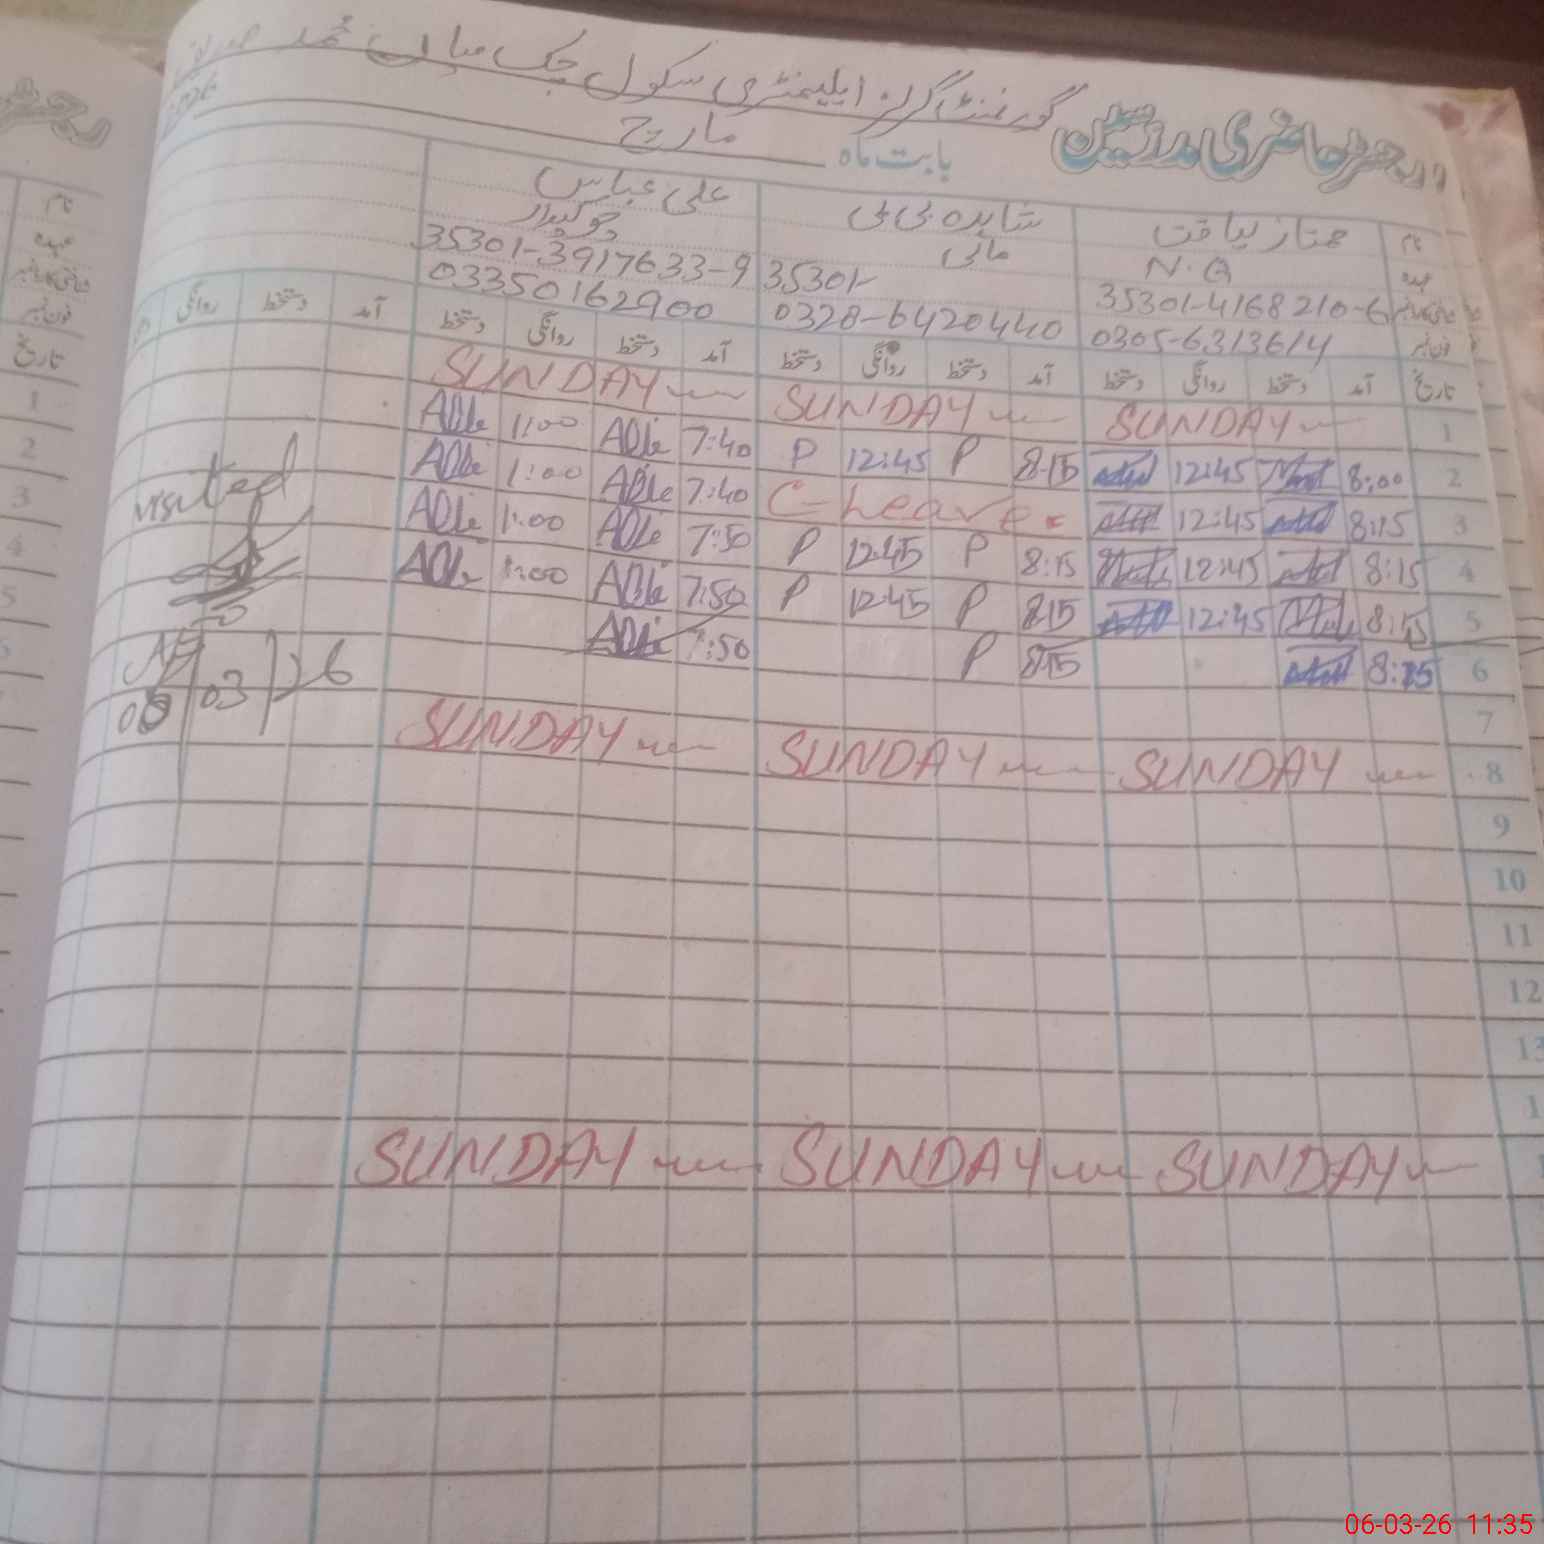 رجسٹر حاضری مدرسین
گورنمنٹ گرلز ایلیمنٹری سکول چک میاں محمد
بابت ماہ مارچ
نام ممتاز لیاقت شاہدہ بی بی علی عباس
عہدہ N.Q مائی چوکیدار
35301-4168210-6 35301- 35301-3917633-9
فون نمبر 0305-6313614 0328-6420440 03350162900
تاریخ آمد دستخط روانگی دستخط آمد دستخط روانگی دستخط آمد دستخط روانگی دستخط آمد دستخط روانگی
1 SUNDAY SUNDAY SUNDAY
2 8:00 12:45 8:15 P 12:45 P 7:40 1:00
3 8:15 12:45 C-Leave 7:40 1:00
4 8:15 12:45 8:15 P 12:45 P 7:50 1:00
5 8:15 12:45 8:15 P 12:45 P 7:50 1:00
6 8:15 8:15 P 7:50
7
8 SUNDAY SUNDAY SUNDAY
9
10
11
12
13
1
SUNDAY SUNDAY SUNDAY
visited
06/03/26
رجسٹر
نام
عہدہ
شناختی کارڈ نمبر
فون نمبر
تاریخ
1
2
3
4
5
06-03-26 11:35